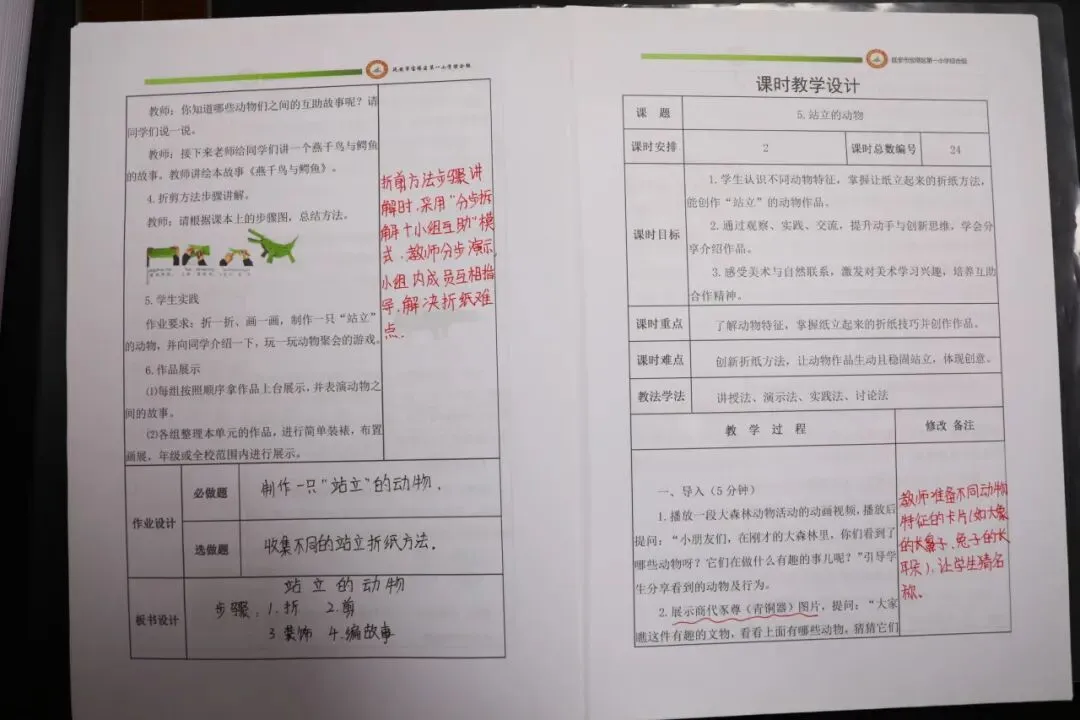 延安市宝塔区第一小学综合组
教师：你知道哪些动物们之间的互助故事呢？请
同学们说一说。
教师：接下来老师给同学们讲一个燕千鸟与鳄鱼
的故事。教师讲绘本故事《燕千鸟与鳄鱼》。
4.折剪方法步骤讲解。
教师：请根据课本上的步骤图，总结方法。
5.学生实践
作业要求：折一折、画一画，制作一只“站立”
的动物，并向同学介绍一下，玩一玩动物聚会的游戏。
6.作品展示
⑴每组按照顺序拿作品上台展示，并表演动物之
间的故事。
⑵各组整理本单元的作品，进行简单装裱，布置
画展，年级或全校范围内进行展示。
折剪方法步骤讲
解时，采用“分步拆
解十小组互助”模
式，教师分步演示，
小组内成员互相指
导，解决折纸难
点.
作业设计
必做题
制作一只“站立”的动物.
选做题
收集不同的站立折纸方法.
板书设计
站立的动物
步骤：1.折 2.剪
3.装饰 4.编故事
延安市宝塔区第一小学综合组
课时教学设计
课 题
5.站立的动物
课时安排
2
课时总数编号
24
课时目标
1.学生认识不同动物特征，掌握让纸立起来的折纸方法，
能创作“站立”的动物作品。
2.通过观察、实践、交流，提升动手与创新思维，学会分
享介绍作品。
3.感受美术与自然联系，激发对美术学习兴趣，培养互助
合作精神。
课时重点
了解动物特征，掌握纸立起来的折纸技巧并创作作品。
课时难点
创新折纸方法，让动物作品生动且稳固站立，体现创意。
教法学法
讲授法、演示法、实践法、讨论法
教 学 过 程
修改 备注
一、导入（5 分钟）
1.播放一段大森林动物活动的动画视频，播放后
提问：“小朋友们，在刚才的大森林里，你们看到了
哪些动物呀？它们在做什么有趣的事儿呢？”引导学
生分享看到的动物及行为。
2.展示商代豕尊（青铜器）图片，提问：“大家
瞧这件有趣的文物，看看上面有哪些动物，猜猜它们
教师准备不同动物
特征的卡片(如大象
的长鼻子、兔子的长
耳朵)，让学生猜名
称.